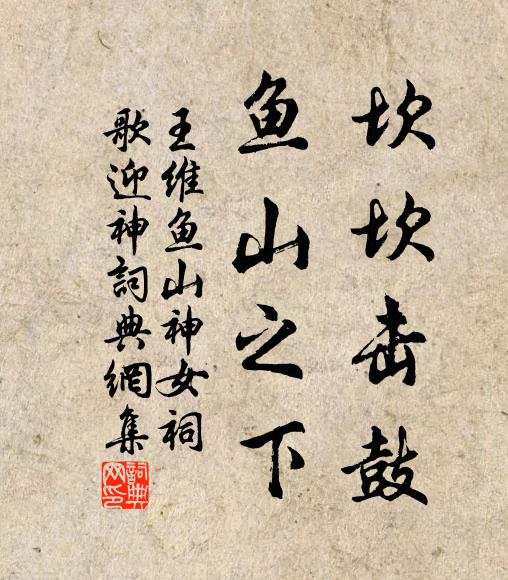 坎坎击鼓
鱼山之下
王维鱼山神女祠
歌迎神詞典網集
詞典网印